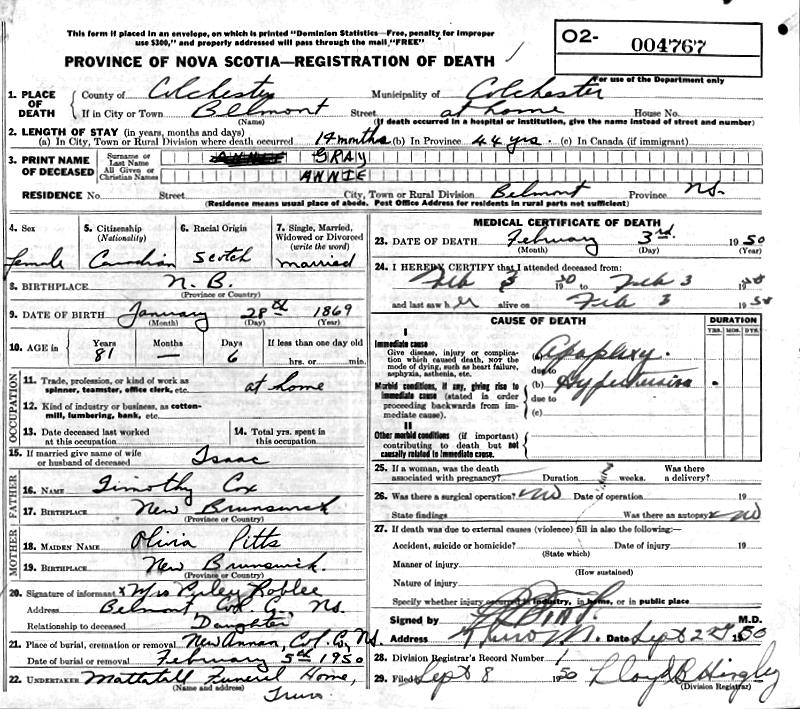 This form if placed in an envelope, on which is printed "Dominion Statistics—Free, penalty for improper
use $300," and properly addressed will pass through the mail "FREE"
PROVINCE OF NOVA SCOTIA—REGISTRATION OF DEATH
02- 004767
For use of the Department only
1. PLACE OF DEATH County of Colchester Municipality of Colchester
If in City or Town Belmont Street at home House No.
(Name) (If death occurred in a hospital or institution, give the name instead of street and number)
2. LENGTH OF STAY (in years, months and days)
(a) In City, Town or Rural Division where death occurred 14 months (b) In Province 44 yrs. (c) In Canada (if immigrant)
3. PRINT NAME OF DECEASED Surname or Last Name ANNIE GRAY
All Given or Christian Names ANNIE
RESIDENCE No. Street City, Town or Rural Division Belmont Province N.S.
(Residence means usual place of abode. Post Office Address for residents in rural parts not sufficient)
4. Sex female
5. Citizenship (Nationality) Canadian
6. Racial Origin Scotch
7. Single, Married, Widowed or Divorced (write the word) married
8. BIRTHPLACE N.B.
(Province or Country)
9. DATE OF BIRTH January 28th 1869
(Month) (Day) (Year)
10. AGE in Years 81 Months — Days 6 If less than one day old hrs. or min.
OCCUPATION
11. Trade, profession, or kind of work as spinner, teamster, office clerk, etc. at home
12. Kind of industry or business, as cotton-mill, lumbering, bank, etc.
13. Date deceased last worked at this occupation
14. Total yrs. spent in this occupation
15. If married give name of wife or husband of deceased Isaac
FATHER
16. NAME Timothy Cox
17. BIRTHPLACE New Brunswick
(Province or Country)
MOTHER
18. MAIDEN NAME Olivia Pitts
19. BIRTHPLACE New Brunswick.
(Province or Country)
20. Signature of informant x Mrs Roblee
Address Belmont, Col. Co., N.S.
Relationship to deceased Daughter
21. Place of burial, cremation or removal New Annan, Col. Co., N.S.
Date of burial or removal February 5th 1950
22. UNDERTAKER Mattatall Funeral Home,
(Name and address) Truro
MEDICAL CERTIFICATE OF DEATH
23. DATE OF DEATH February 3rd. 1950
(Month) (Day) (Year)
24. I HEREBY CERTIFY that I attended deceased from:
Feb 3 1950 to Feb 3 1950
and last saw her alive on Feb 3 1950
CAUSE OF DEATH DURATION
YRS. MOS. DYS.
I
Immediate cause
Give disease, injury or complication which caused death, NOT the mode of dying, such as heart failure, asphyxia, asthenia, etc.
(a) Apoplexy.
due to
Morbid conditions, if any, giving rise to immediate cause (stated in order proceeding backwards from immediate cause).
(b) Hypertension
due to
(c)
II
Other morbid conditions (if important) contributing to death but not causally related to immediate cause.
25. If a woman, was the death associated with pregnancy? Duration weeks. Was there a delivery?
26. Was there a surgical operation? no Date of operation 19
State findings Was there an autopsy? no
27. If death was due to external causes (violence) fill in also the following:—
Accident, suicide or homicide? Date of injury 19
(State which)
Manner of injury
(How sustained)
Nature of injury
Specify whether injury occurred in industry, in home, or in public place
Signed by M.D.
Address Truro N.S. Date Sept 1950
28. Division Registrar's Record Number 1
29. Filed Sept 8 1950 Lloyd
(Division Registrar)